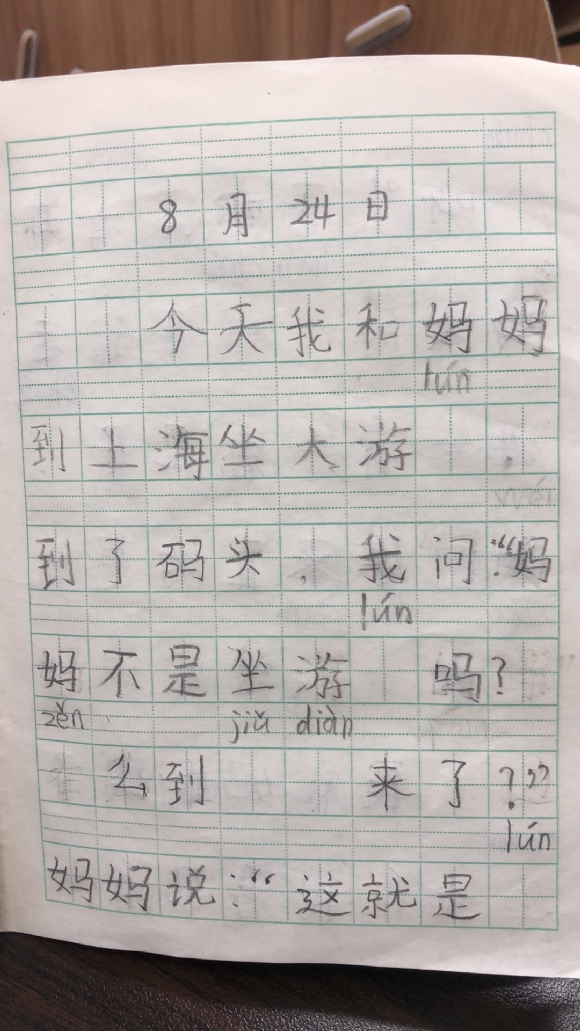 8月24日
今天我和妈妈
lún
到上海坐大游 ，
到了码头，我问：“妈
lún
妈不是坐游 吗？
zěn jiǔ diàn
么到 来了？”
lún
妈妈说：“这就是